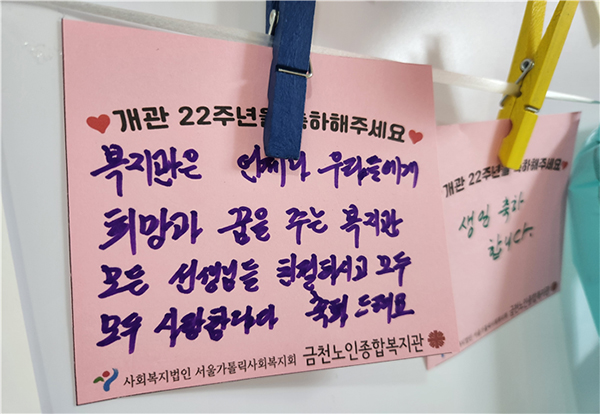 개관 22주년을 축하해주세요
복지관은 언제나 우리들에게
희망과 꿈을 주는 복지관
모든 선생님들 친절하시고 모두
모두 사랑합니다 축하 드려요
사회복지법인 서울가톨릭사회복지회 금천노인종합복지관
개관 22주년을 축하해주세요
생일 축하
합니다.
금천노인종합복지관